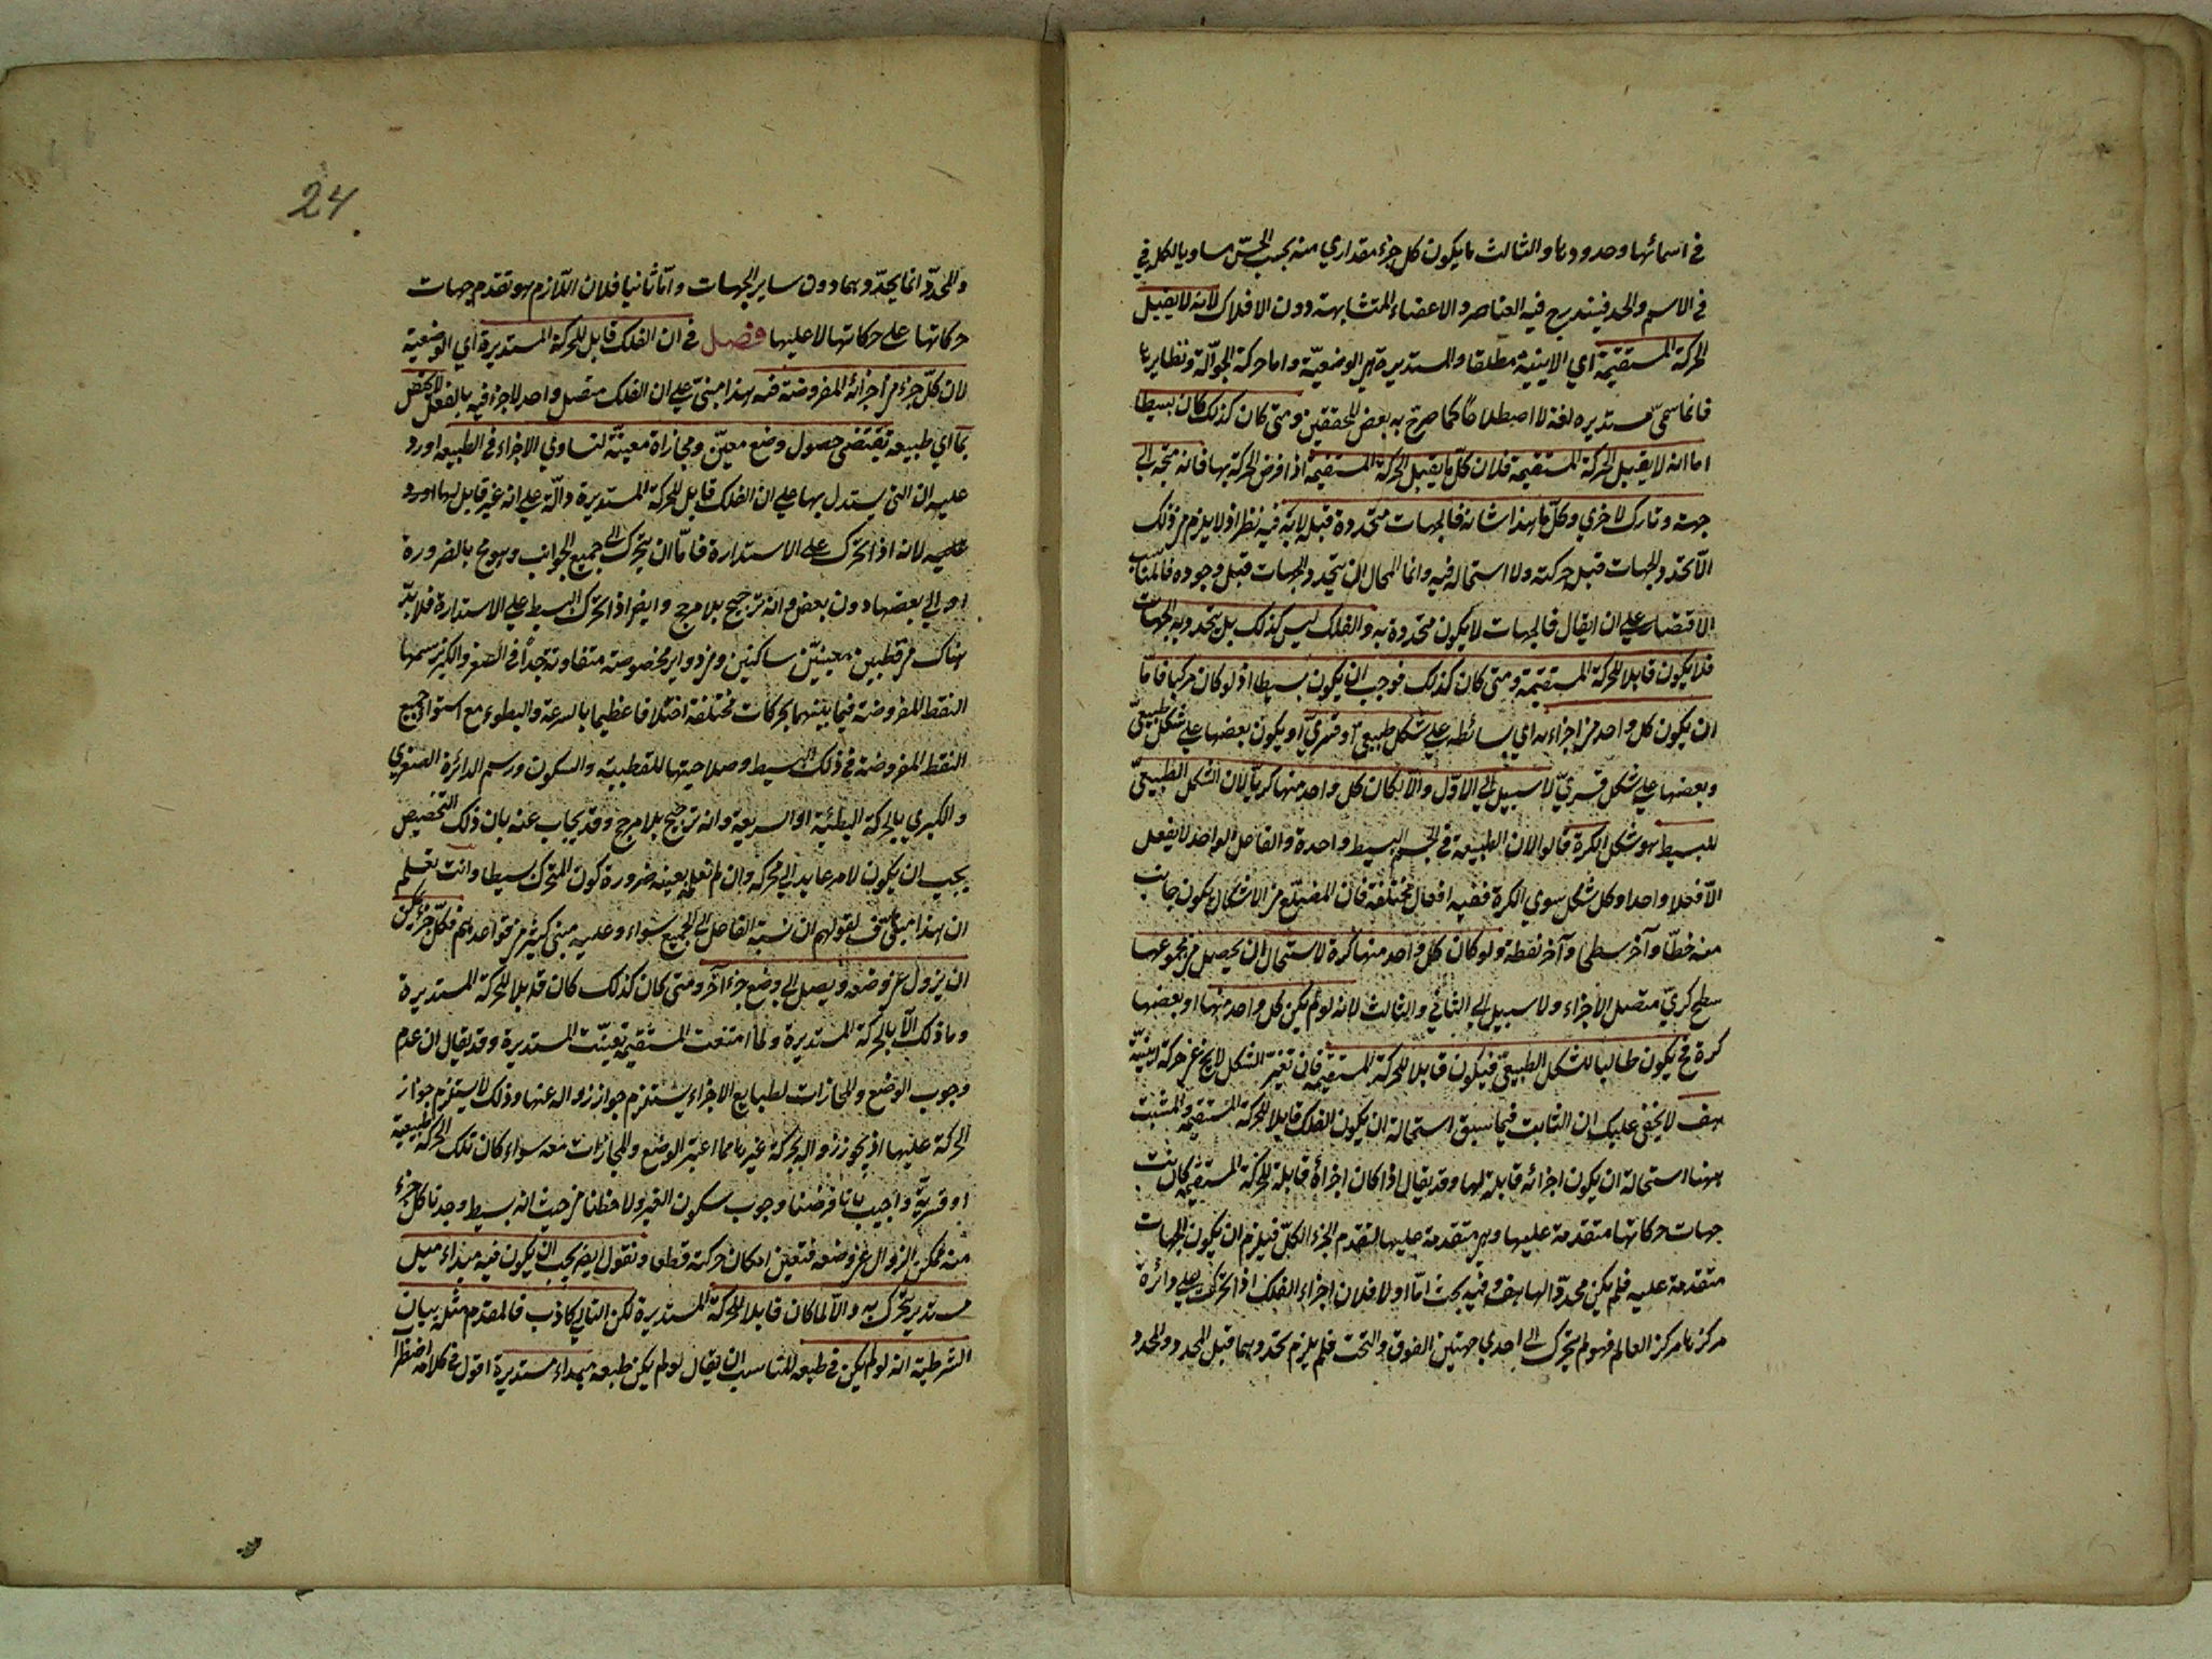 في اسمائها وحدودها والثالث ما يكون كل جزء مقداري منه بحسب الحسّ مساويا لكله في
في الاسم والحد فيندرج فيه العناصر والاعضاء المتشابهة دون الافلاك لانه لا يقبل
الحركة المستقيمة اي الاينية مطلقا والمستديرة هي الوضعيّة واما حركة الجوّالة ونظايرها
فانما سمّي مستديرة لغة لا اصطلاحًا كما صرّح به بعض المحققين ومتى كان كذلك كان بسيطا
اما انه لا يقبل الحركة المستقيمة فلان كلّ ما يقبل الحركة المستقيمة اذا فرض الحركة بها فانه متجه الى
جهة وتارك لاخري وكلّ ما هذا شانه فالجهات متحددة قبله لا به فيه نظر اذ لا يلزم من ذلك
الّا تحدد الجهات قبل حركته ولا استحالة فيه وانما المحال ان يتحدد الجهات قبل وجوده فالمناسب
الاقتصار على ان يقال فالجهات لا يكون متحددة به والفلك ليس كذلك بل يتحدد به الجهات
فلا يكون قابلا للحركة المستقيمة ومتى كان كذلك فوجب ان يكون بسيطا اذ لو كان مركبا فامّا
ان يكون كل واحد من اجزاءه اي بسائطه على شكل طبيعيّ او قسريّ او يكون بعضها على شكل طبيعيّ
وبعضها على شكل قسريّ لا سبيل الى الاوّل والّا لكان كل واحد منها كريّا لان الشكل الطبيعيّ
للبسيط هو شكل الكرة قالوا لان الطبيعة في الجسم البسيط واحدة والفاعل الواحد لا يفعل
الّا فعلا واحدا وكل شكل سوي الكرة ففيه افعال مختلفة فان المضلّع من الاشكال يكون جانب
منه خطّا وآخر سطحا وآخر نقطة ولو كان كل واحد منها كرة لاستحال ان يحصل من مجموعها
سطح كريّ متصل الاجزاء ولا سبيل الى الثاني والثالث لانه لو لم يكن كل واحد منها او بعضها
كرة فح يكون طالبا للشكل الطبيعيّ فيكون قابلا للحركة المستقيمة فان تغيّر الشكل لا يخ عن حركة اينيّة
هف لا يخفى عليك ان الثابت فيما سبق استحالة ان يكون الفلك قابلا للحركة المستقيمة والمثبت
ههنا استحالة ان يكون اجزائه قابلة لها وقد يقال اذا كان اجزاؤه قابلة للحركة المستقيمة كانت
جهات حركاتها متقدمة عليها وهي متقدمة عليه لتقدم الجزء الكلّ فيلزم ان يكون الجهات
متقدمة عليه فلم يكن محددّا لها هف وفيه بحث امّا اولا فلان اجزاء الفلك اذا تحركت على دائرة
مركزها مركز العالم فهو لم يتحرك الى احدي جهتين الفوق والتحت فلم يلزم تحددهما قبل المحدد والمحدد
24
والمحدّد انما يحدّدهما دون ساير الجهات وامّا ثانيا فلان اللّازم هو تقدم جهات
حركاتها على حركاتها لا عليها فصل في ان الفلك قابل للحركة المستديرة اي الوضعية
لان كلّ جزء من أجزائه المفروضة فيه هذا مبنيّ على ان الفلك متصل واحد لا جزء فيه بالفعل لا يختصّ
بما اي طبيعة تقتضي حصول وضع معيّن ومحاذاة معيّنة لتساوي الاجزاء في الطبيعة اورد
عليه ان التي يستدل بها على ان الفلك قابل للحركة المستديرة دالّة على انه غير قابل لها اورد
عليه لانه اذا تحرّك على الاستدارة فامّا ان يتحرك الى جميع الجوانب وهو مح بالضرورة
او الى بعضها دون بعض وانه ترجيح بلا مرجح وايضا اذا تحرك البسيط على الاستدارة فلا بدّ
هناك من قطبين معيّنين ساكنين ومن دواير مخصوصة متفاوتة جدا في الصغر والكبر يرسمها
النقط المفروضة فيما بينهما بحركات مختلفة اختلافا عظيما بالسرعة والبطوء مع استواء جميع
النقط المفروضة في ذلك البسيط وصلاحيتها للقطبية والسكون ورسم الدائرة الصغري
والكبري بالحركة البطئية او السريعة وانه ترجيح بلا مرجح وقد يجاب عنه بان ذلك التخصيص
يجب ان يكون لامر عايد الى محركه وان لم نعلمه بعينه ضرورة كون المتحرك بسيطا وانت تعلم
ان هذا مناف لقولهم ان نسبة الفاعل الى الجميع سواء وعليه مبني كثير من قواعدهم فكلّ جزء يمكن
ان يزول عن وضعه ويصل الى وضع جزء آخر ومتى كان كذلك كان قابلا للحركة المستديرة
وما ذلك الّا بالحركة المستديرة ولمّا امتنعت المستقيمة تعيّنت المستديرة وقد يقال ان عدم
وجوب الوضع والمحاذات لطبايع الاجزاء يستلزم جواز زواله عنها وذلك لا يستلزم جواز
الحركة عليها اذ يجوز زواله بحركة غيرها مما اعتبر الوضع والمحاذات معه سواء كان تلك الحركة طبيعية
او قسريّة واجيب بانا فرضنا وجوب سكون الغير ولاحظنا من حيث انه بسيط وجدنا كل جزء
منه ممكن الزوال عن وضعه فتعين امكان حركته قطعا ونقول ايضا يجب ان يكون فيه مبداء ميل
مستدير يتحرك به والّا لما كان قابلا للحركة المستديرة لكن التالي كاذب فالمقدم مثله بيان
الشرطية انه لو لم يكن في طبعه المناسب ان يقال لو لم يكن طبعه مبداء مستديرة اقول في كلامه اضطرا